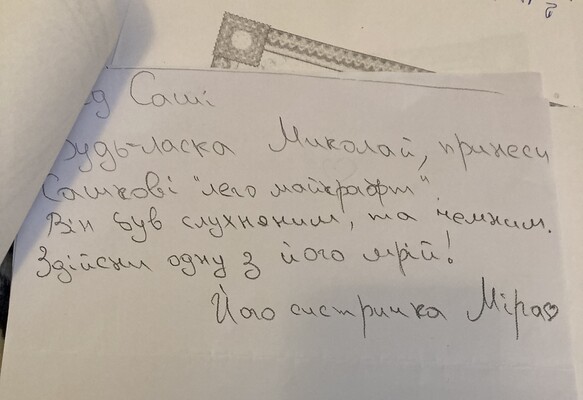 Від Саші
Будь-ласка Миколай, принеси
Сашкові "лего майкрафт".
Він був слухняним, та чемним.
Здійсни одну з його мрій!
Його систричка Міра♡